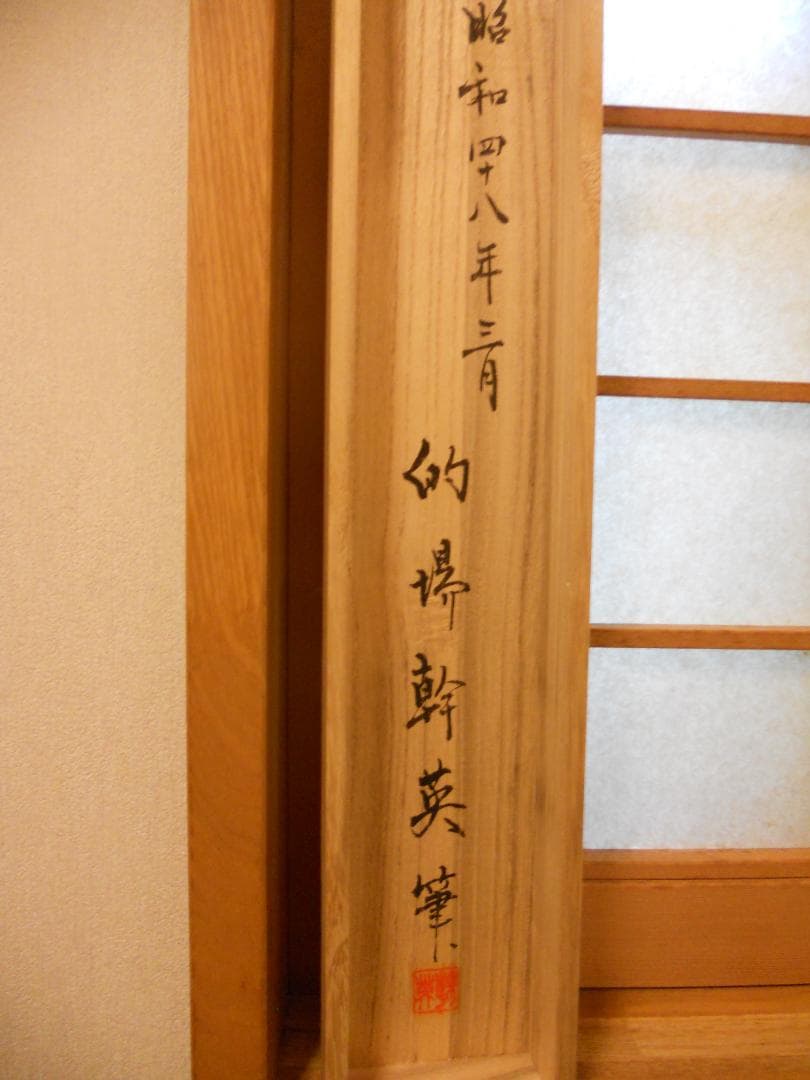 昭和四十八年三月
的場幹英筆